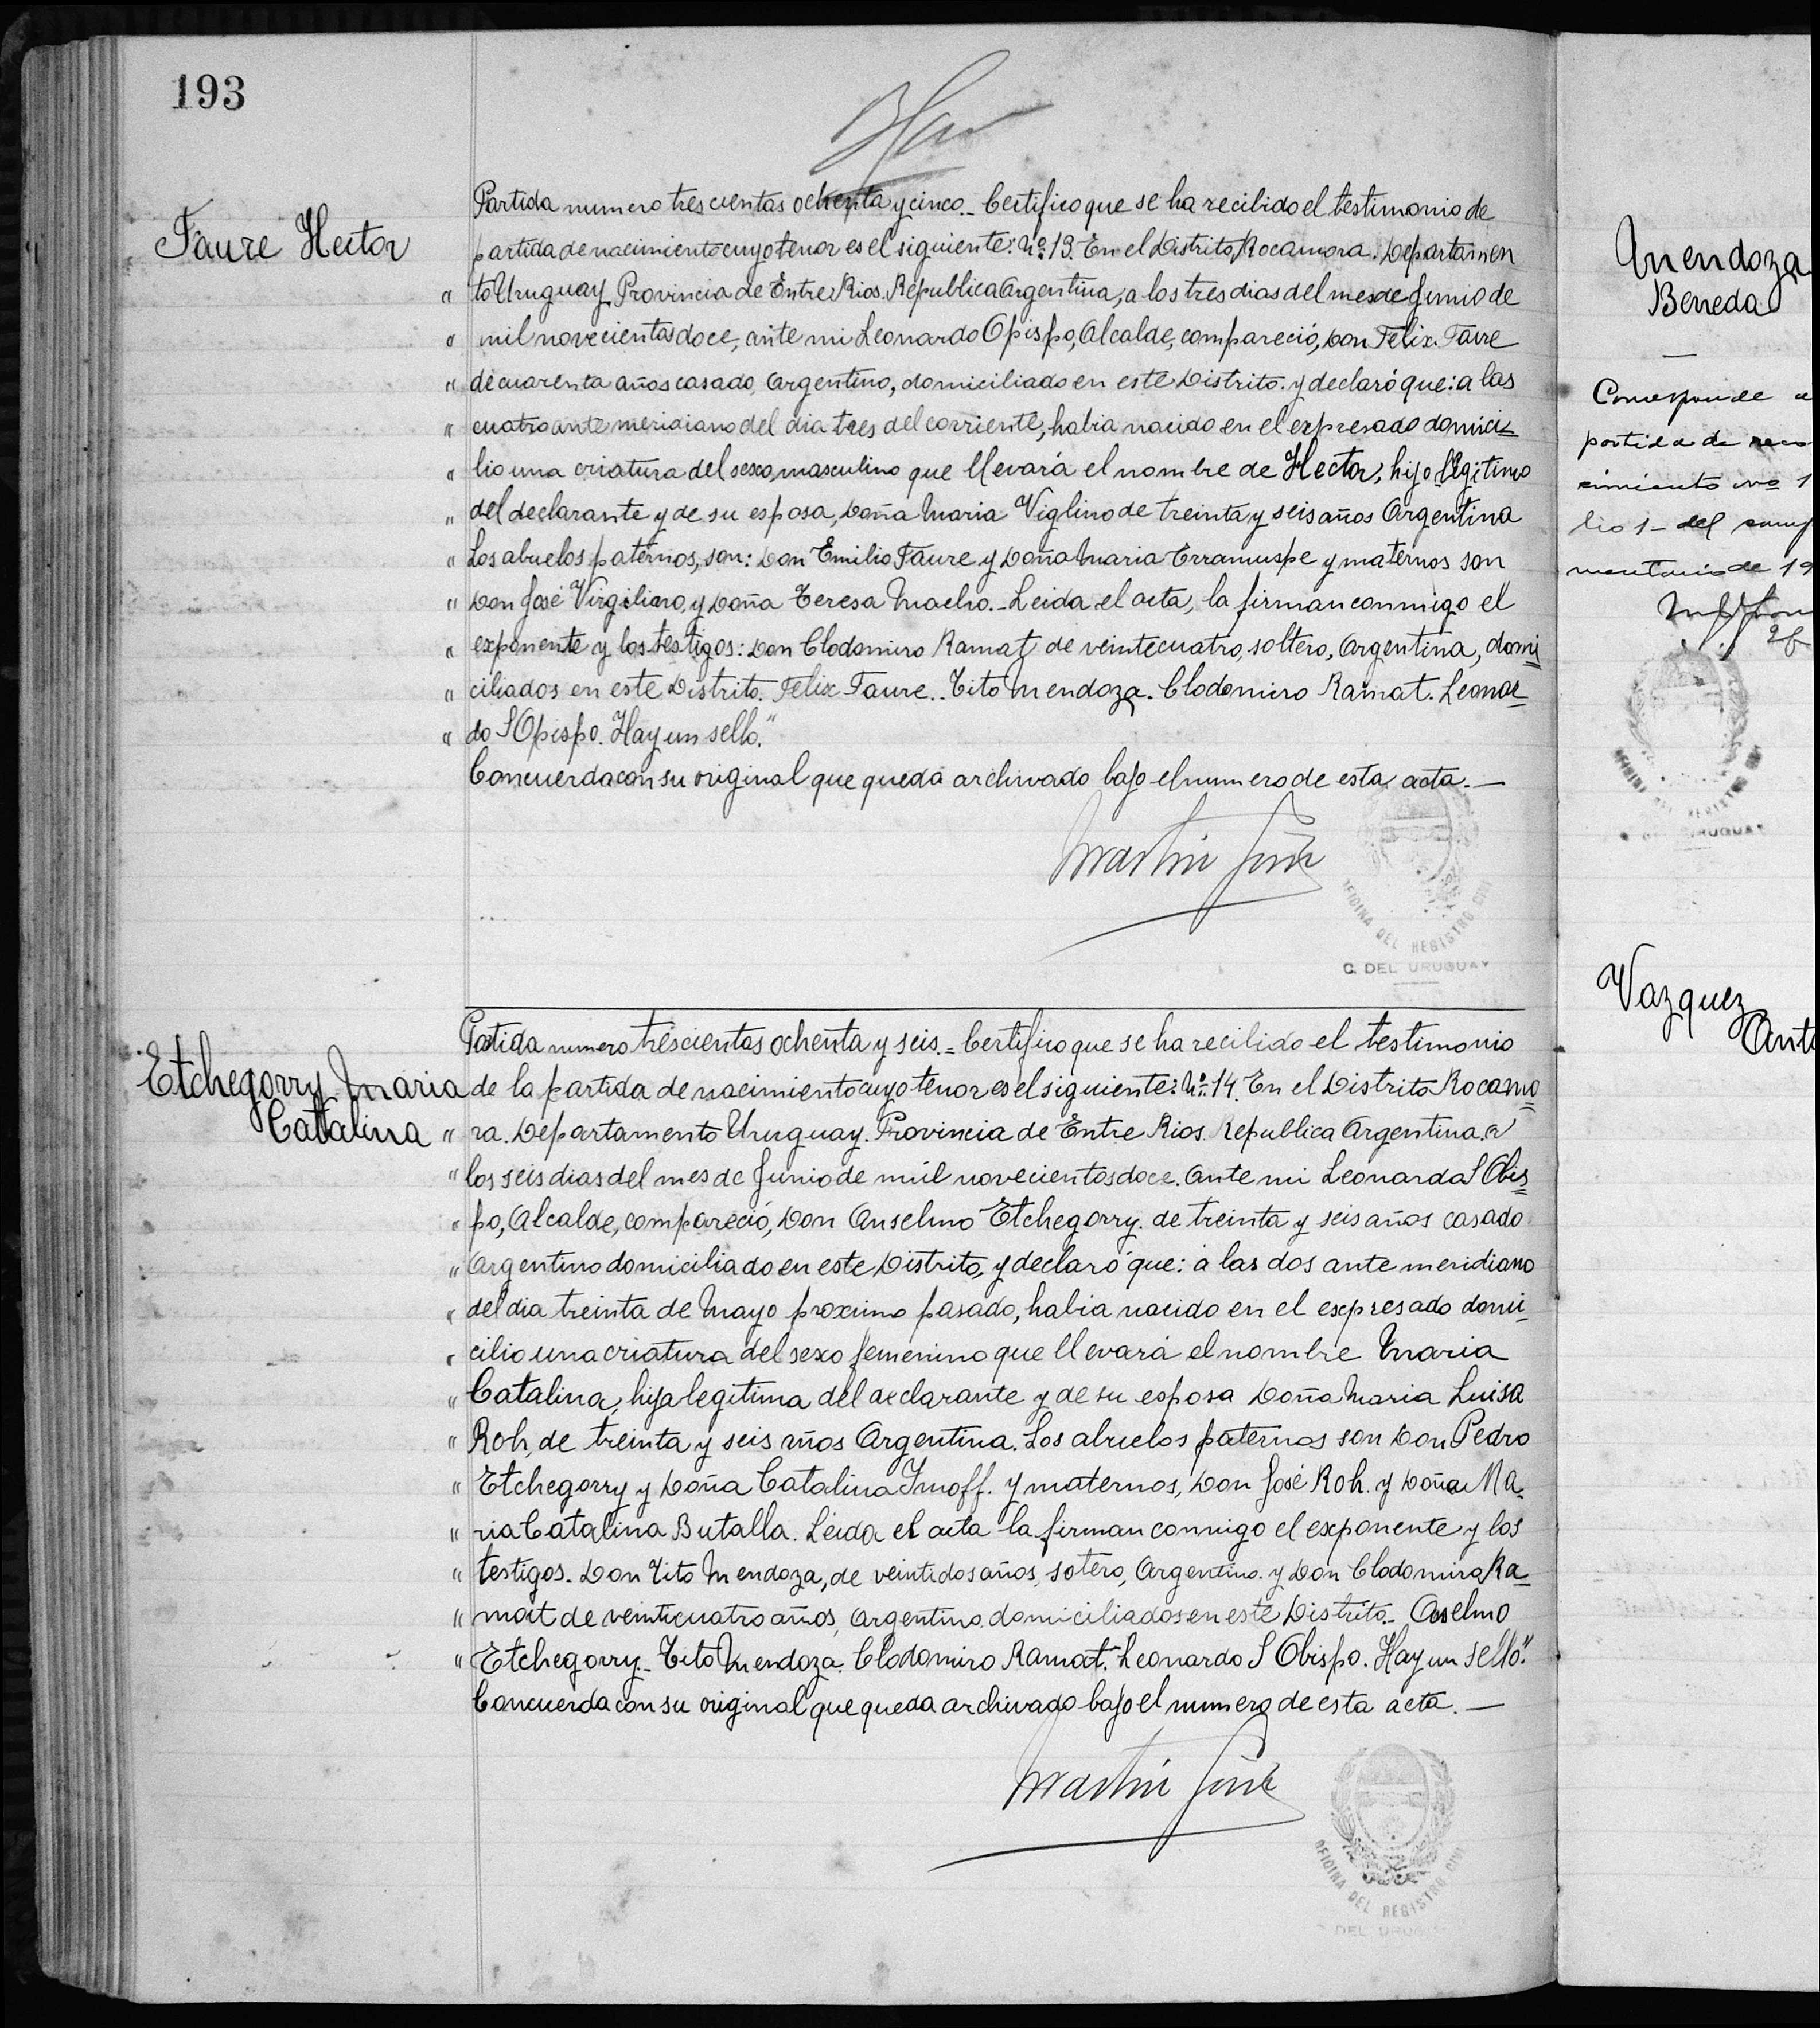 193
Faure Hector
Partida numero trescientas ochenta y cinco._ Certifico que se ha recibido el testimonio de
partida de nacimiento cuyo tenor es el siguiente: Nº 13. En el Distrito, Rocamora. Departamen
" to Uruguay, Provincia de Entre Rios. Republica Argentina, a los tres dias del mes de Junio de
" mil novecientos doce, ante mi Leonardo Opispo, Alcalde, compareció, Don Felix Faure
" de cuarenta años casado, Argentino, domiciliado en este Distrito. y declaró que: a las
" cuatro ante meridiano del dia tres del corriente, habia nacido en el expresado domici=
" lio una criatura del sexo, masculino que llevará el nombre de Hector, hijo legitimo
" del declarante y de su esposa, Doña Maria Viglino de treinta y seis años Argentina
" Los abuelos paternos, son: Don Emilio Faure y Doña Maria Erramuspe y maternos son
" Don José Virgiliano, y Doña Teresa Macho._ Leida el acta, la firman conmigo el
" exponente y los testigos: Don Clodomiro Ramat de veintecuatro, soltero, Argentina, domi
" ciliados en este Distrito. Felix Faure._ Tito Mendoza. Clodomiro Ramat. Leonar
" do S Opispo. Hay un sello."
Concuerda con su original que queda archivado bajo el numero de esta acta._
Martin
OFICINA DEL REGISTRO CIVIL
C. DEL URUGUAY
Etchegorry Maria
Catalina
Partida numero trescientas ochenta y seis._ Certifico que se ha recilido el testimonio
de la partida de nacimiento cuyo tenor es el siguiente: Nº 14. En el Distrito Rocamo
" ra. Departamento Uruguay. Provincia de Entre Rios. Republica Argentina. a
" los seis dias del mes de Junio de mil novecientos doce. ante mi Leonardo S Obis
" po, Alcalde, compareció, Don Anselmo Etchegorry. de treinta y seis años casado
" Argentino domiciliado en este Distrito, y declaró que: a las dos ante meridiano
" del dia treinta de Mayo proximo pasado, habia nacido en el expresado domi-
" cilio una criatura del sexo femenino que llevará el nombre Maria
" Catalina, hija legitima del declarante y de su esposa Doña Maria Luisa
" Roh, de treinta y seis años Argentina. Los abuelos paternos son Don Pedro
" Etchegorry y Doña Catalina Imoff. y maternos, Don José Roh. y Doña Ma-
" ria Catalina Butalla. Leida el acta la firman conmigo el exponente y los
" testigos. Don Tito Mendoza, de veintidos años, sotero, Argentino. y Don Clodomiro Ra
" mat de veinticuatro años, Argentino domiciliados en este Distrito._ Aselmo
" Etchegorry._ Tito Mendoza. Clodomiro Ramat. Leonardo S Obispo. Hay un sello."
Concuerda con su original que queda archivado bajo el numero de esta acta._
Martin
OFICINA DEL REGISTRO CIVI
DEL URUGU
Mendoza
Beneda
Corresponde a
partida de
cimiento nro 1
lio 1-del
mentario de 19
DEL REGISTRO
C. DEL URUGUAY
Vazquez
Anto